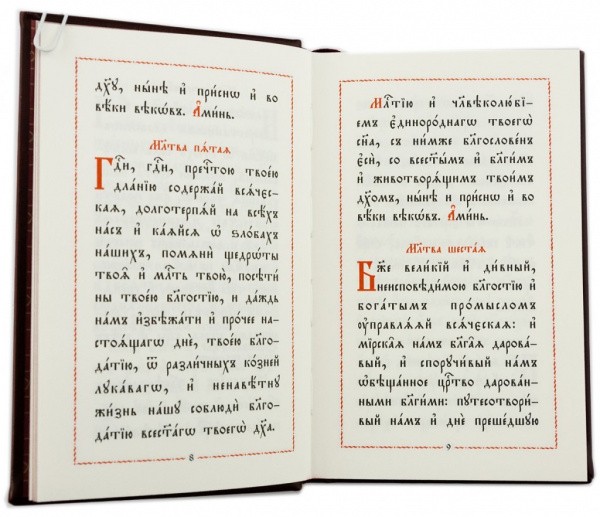 дх҃ꙋ, ны́нѣ и҆ при́снѡ и҆ во
вѣ́ки вѣкѡ́въ. А҆ми́нь.
Мл҃тва пѧ́таѧ
Гдⷭ҇и, гдⷭ҇и, пречⷭ҇тою твое́ю
дла́нїю содержа́й всѧ́чес-
каѧ, долготерпѧ́й на всѣ́хъ
на́съ и҆ ка́ѧйсѧ ѡ҆ ѕло́бахъ
на́шихъ, помѧнѝ щедрѡ́ты
твоѧ̑ и҆ млⷭ҇ть твою̀, посѣтѝ
ны̀ твое́ю бл҃гостїю, и҆ да́ждь
на́мъ и҆збѣжа́ти и҆ про́чее на-
стоѧ́щагѡ днѐ, твое́ю бл҃го-
да́тїю, ѿ разли́чныхъ ко́зней
лꙋка́вагѡ, и҆ ненавѣ́тнꙋ
жи́знь на́шꙋ соблюдѝ бл҃го-
да́тїю всест҃а́гѡ твоегѡ̀ дх҃а.
8
Млⷭ҇тїю и҆ чл҃вѣколю́бї-
емъ є҆диноро́днагѡ твоегѡ̀
сн҃а, съ ни́мже бл҃гослове́нъ
є҆сѝ, со всест҃ы́мъ и҆ бл҃ги́мъ
и҆ животворѧ́щимъ твои́мъ
дх҃омъ, ны́нѣ и҆ при́снѡ и҆ во
вѣ́ки вѣкѡ́въ. А҆ми́нь.
Мл҃тва шеста́ѧ
Бж҃е вели́кїй и҆ ди́вный,
неисповѣди́мою бл҃гостїю и҆
бога́тымъ про́мысломъ
ᲂу҆правлѧ́ѧй всѧ́чєскаѧ: и҆
мїрска̑ѧ на́мъ бл҃га̑ѧ дарова́-
вый, и҆ спорꙋчи́вый на́мъ
ѡ҆бѣща́нное црⷭ҇тво дарова́н-
ными бл҃ги́ми: пꙋтесотвори́-
вый на́мъ и҆ днѐ преше́дшꙋю
9